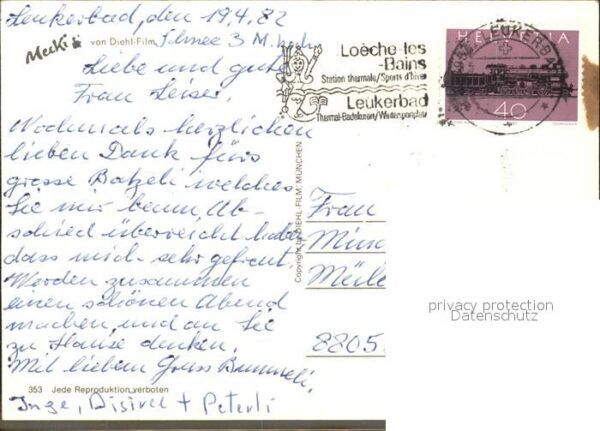 Leukerbad, den 19.4.82
Mecki
von Diehl-Film
3 M. hoch
Liebe und gute
Frau Leiser.
Wochmals herzlichen
lieben Dank fürs
grosse Batzeli welches
Sie mir beim Ab-
schied überreicht haben
dass mich sehr gefreut.
Werden zusammen
einen schönen Abend
machen, und an Sie
zu Hause denken.
Mit lieben Gruss Bummeli.
353 Jede Reproduktion verboten
Inge, + Peterli
Copyright by DIEHL-FILM, MÜNCHEN
Loèche-les
-Bains
Station thermale/Sports d'hiver
Leukerbad
Thermal-Badekurort/Wintersportplatz
LEUKERBAD
HELVETIA
40
Frau
8805
privacy protection
Datenschutz